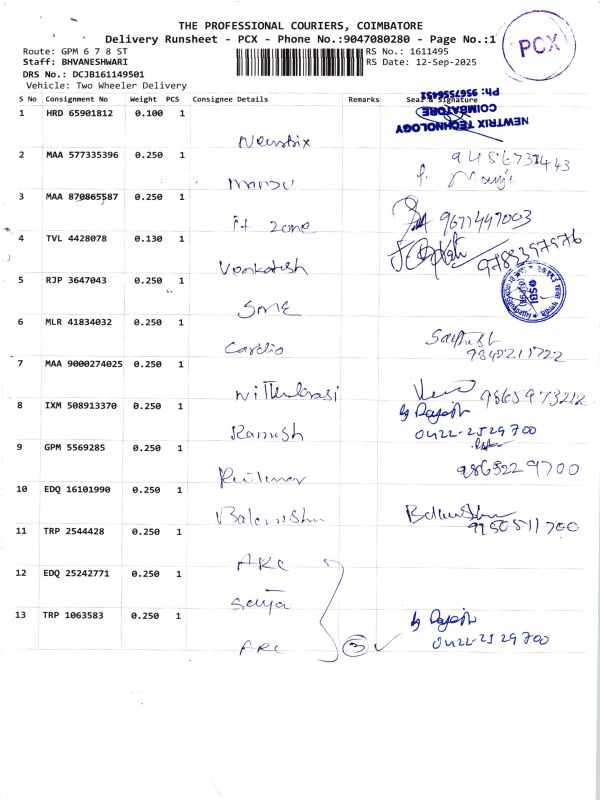 THE PROFESSIONAL COURIERS, COIMBATORE
Delivery Runsheet - PCX - Phone No.:9047080280 - Page No.:1
PCX
Route: GPM 6 7 8 ST
RS No.: 1611495
Staff: BHVANESHWARI
RS Date: 12-Sep-2025
DRS No.: DCJB161149501
Vehicle: Two Wheeler Delivery
S No Consignment No Weight PCS Consignee Details Remarks Seal & Signature
NEWTRIX TECHNOLOGY
COIMBATORE
Ph: 9567556451
1 HRD 65901812 0.100 1 Newtrix
2 MAA 577335396 0.250 1
3 MAA 870865587 0.250 1 it zone 9677447003
4 TVL 4428078 0.130 1 Venkatesh 9789397976
5 RJP 3647043 0.250 1 SME
6 MLR 41834032 0.250 1 Cardio
9842211722
7 MAA 9000274025 0.250 1 9865973212
8 IXM 508913370 0.250 1 Ramesh by Rajesh
0422-2529700
9 GPM 5569285 0.250 1
9865229700
10 EDQ 16101990 0.250 1
9150511700
11 TRP 2544428 0.250 1 ARC
12 EDQ 25242771 0.250 1 Surya
13 TRP 1063583 0.250 1 ARC 3 by Rajesh
0422-2529700